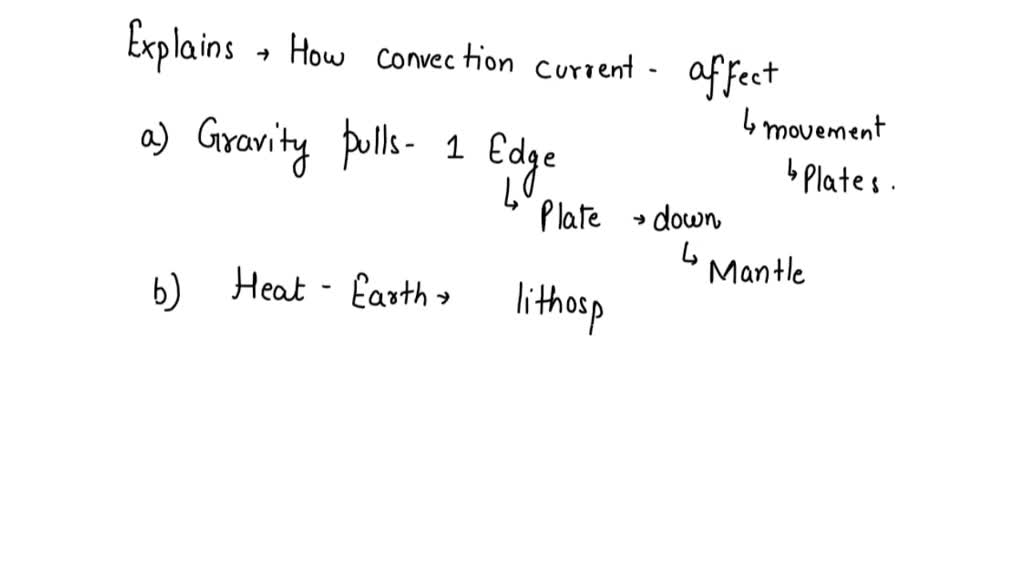 Explains → How convection current - affect
↳ movement
↳ Plates.
a) Gravity pulls - 1 Edge
↳ Plate → down
↳ Mantle
b) Heat - Earth → lithosp